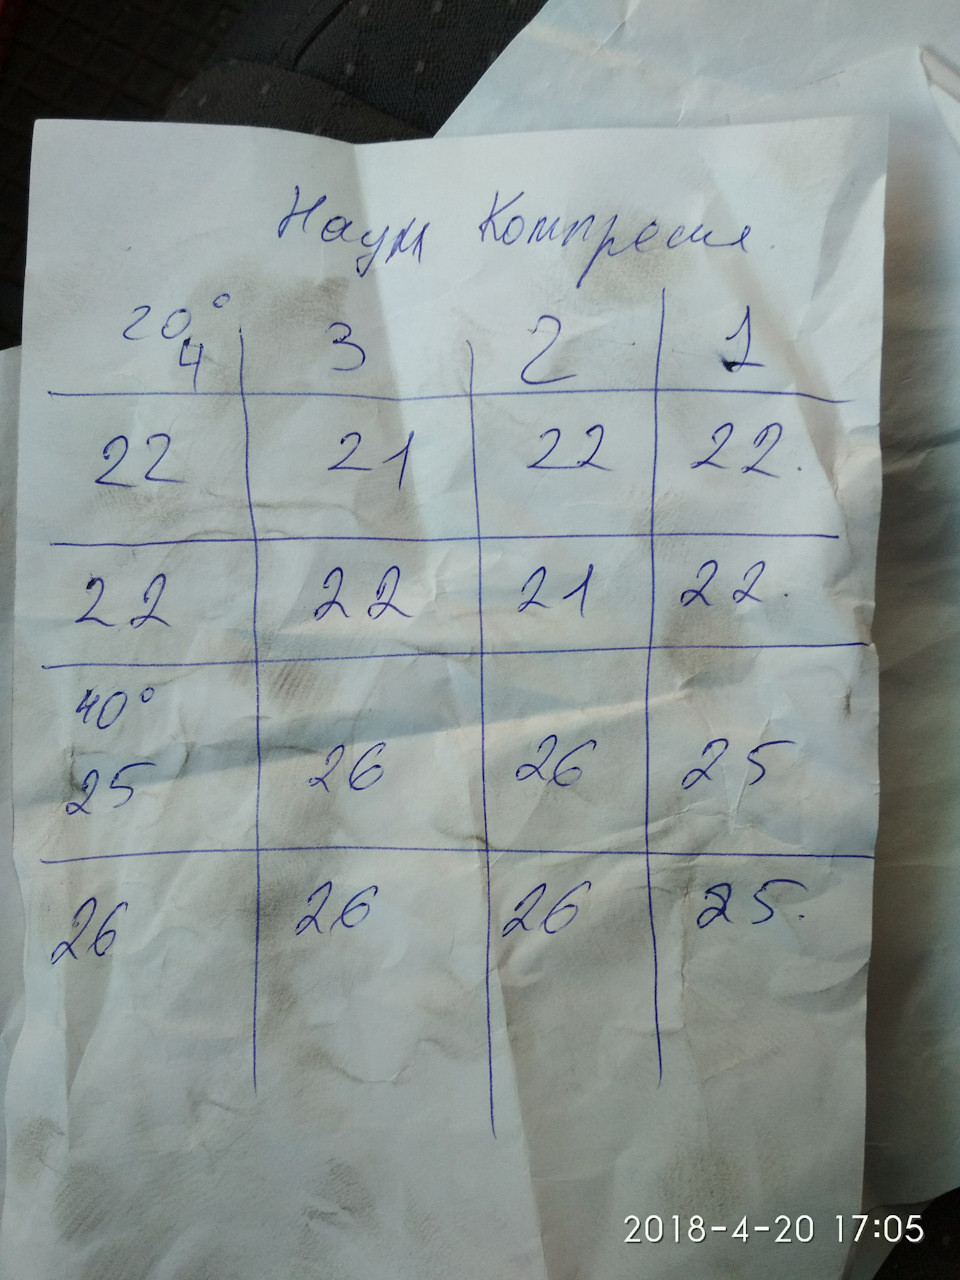 Наум Компресия
20°
4 3 2 1
22 21 22 22.
22 22 21 22.
40°
25 26 26 25
26 26 26 25.
2018-4-20 17:05